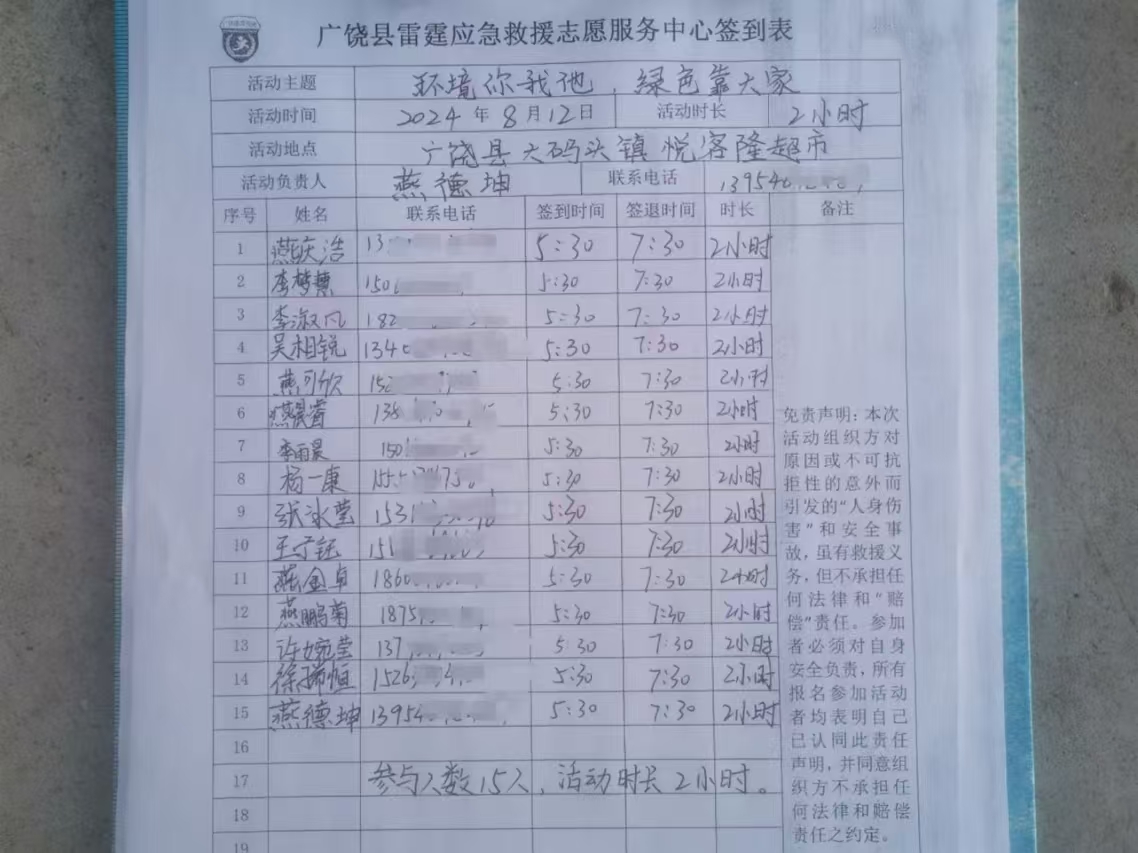 广饶县雷霆应急救援志愿服务中心签到表
活动主题 环境你我他，绿色靠大家
活动时间 2024年8月12日 活动时长 2小时
活动地点 广饶县大码头镇悦客隆超市
活动负责人 燕德坤 联系电话 139540
序号 姓名 联系电话 签到时间 签退时间 时长 备注
1 燕庆浩 13 5:30 7:30 2小时
2 李梦慧 150 5:30 7:30 2小时
3 李淑凡 182 5:30 7:30 2小时
4 吴相锐 134 5:30 7:30 2小时
5 燕可欣 15 5:30 7:30 2小时
6 13 5:30 7:30 2小时
7 李雨昊 150 5:30 7:30 2小时
8 杨一康 155 5:30 7:30 2小时
9 张冰莹 153 5:30 7:30 2小时
10 151 5:30 7:30 2小时
11 燕金卓 186 5:30 7:30 2小时
12 燕鹏菊 1875 5:30 7:30 2小时
13 许婉莹 137 5:30 7:30 2小时
14 徐瑞恒 1526 5:30 7:30 2小时
15 燕德坤 13954 5:30 7:30 2小时
16
17 参与人数15人，活动时长2小时。
18
19
免责声明：本次
活动组织方对
原因或不可抗
拒性的意外而
引发的“人身伤
害”和安全事
故，虽有救援义
务，但不承担任
何法律和“赔
偿”责任。参加
者必须对自身
安全负责，所有
报名参加活动
者均表明自己
已认同此责任
声明，并同意组
织方不承担任
何法律和赔偿
责任之约定。